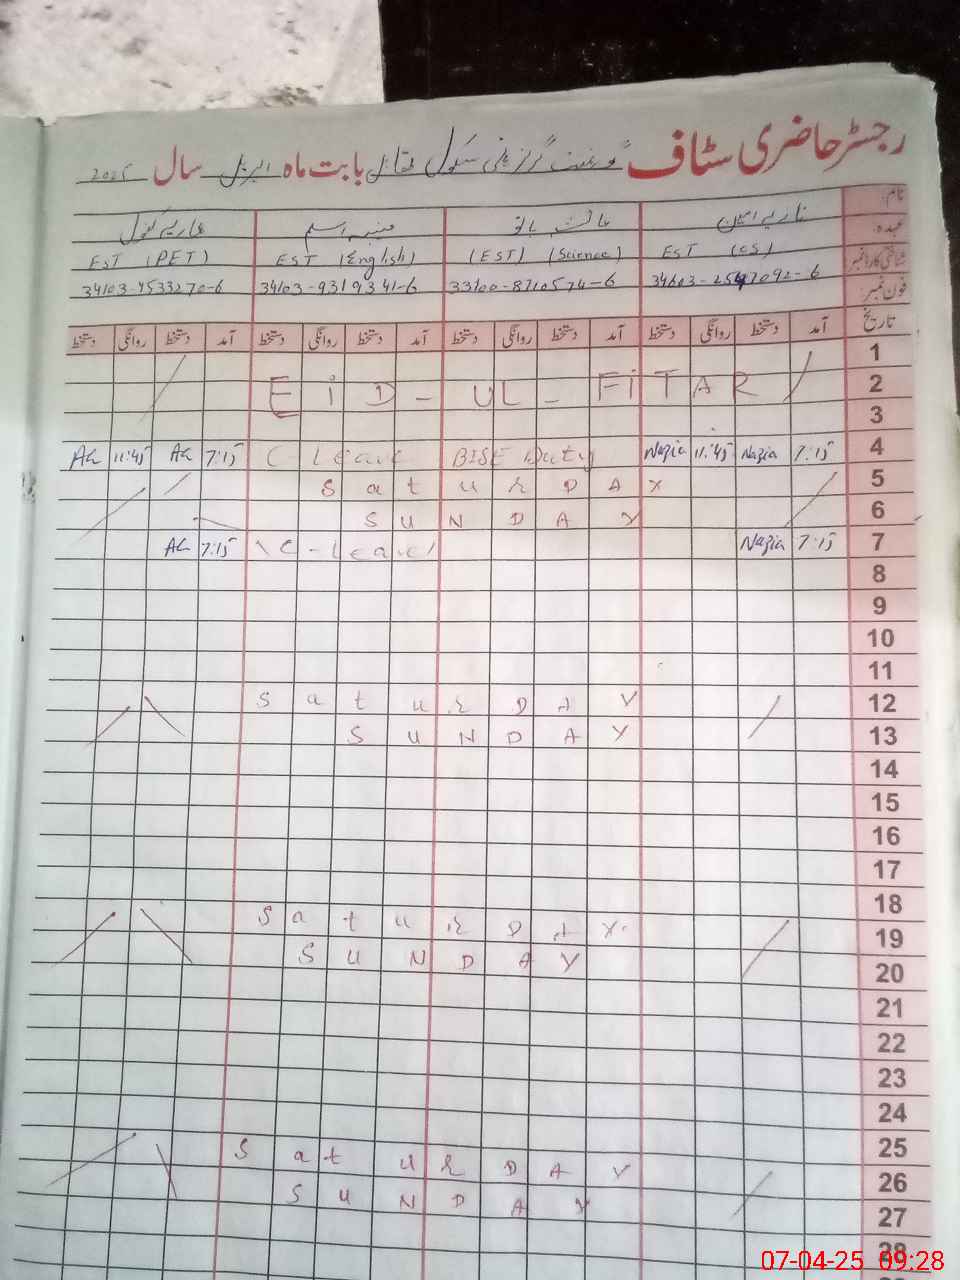 رجسٹر حاضری سٹاف گورنمنٹ گرلز ہائی سکول بابت ماہ اپریل سال 2025
نام:
نازیہ امین عائشہ بانو منیبہ اسلم ماریہ کنول
عہدہ:
EST (CS) (EST) (Science) EST (English) EST (PET)
شناختی کارڈ نمبر
34603-2547092-6 33100-8710574-6 34103-9319341-6 34103-4533270-6
فون نمبر:
تاریخ آمد دستخط روانگی دستخط آمد دستخط روانگی دستخط آمد دستخط روانگی دستخط آمد دستخط روانگی دستخط
1
EiD - UL - FiTAR 2
3
11:45 7:15 C-Leave BISE Duty Nazia 11:45 Nazia 7:15 4
SatURDAY 5
SUNDAY 6
7:15 C-Leave Nazia 7:15 7
8
9
10
11
SatURDAY 12
SUNDAY 13
14
15
16
17
18
SatURDAY 19
SUNDAY 20
21
22
23
24
25
SatURDAY 26
SUNDAY 27
28
07-04-25 09:28